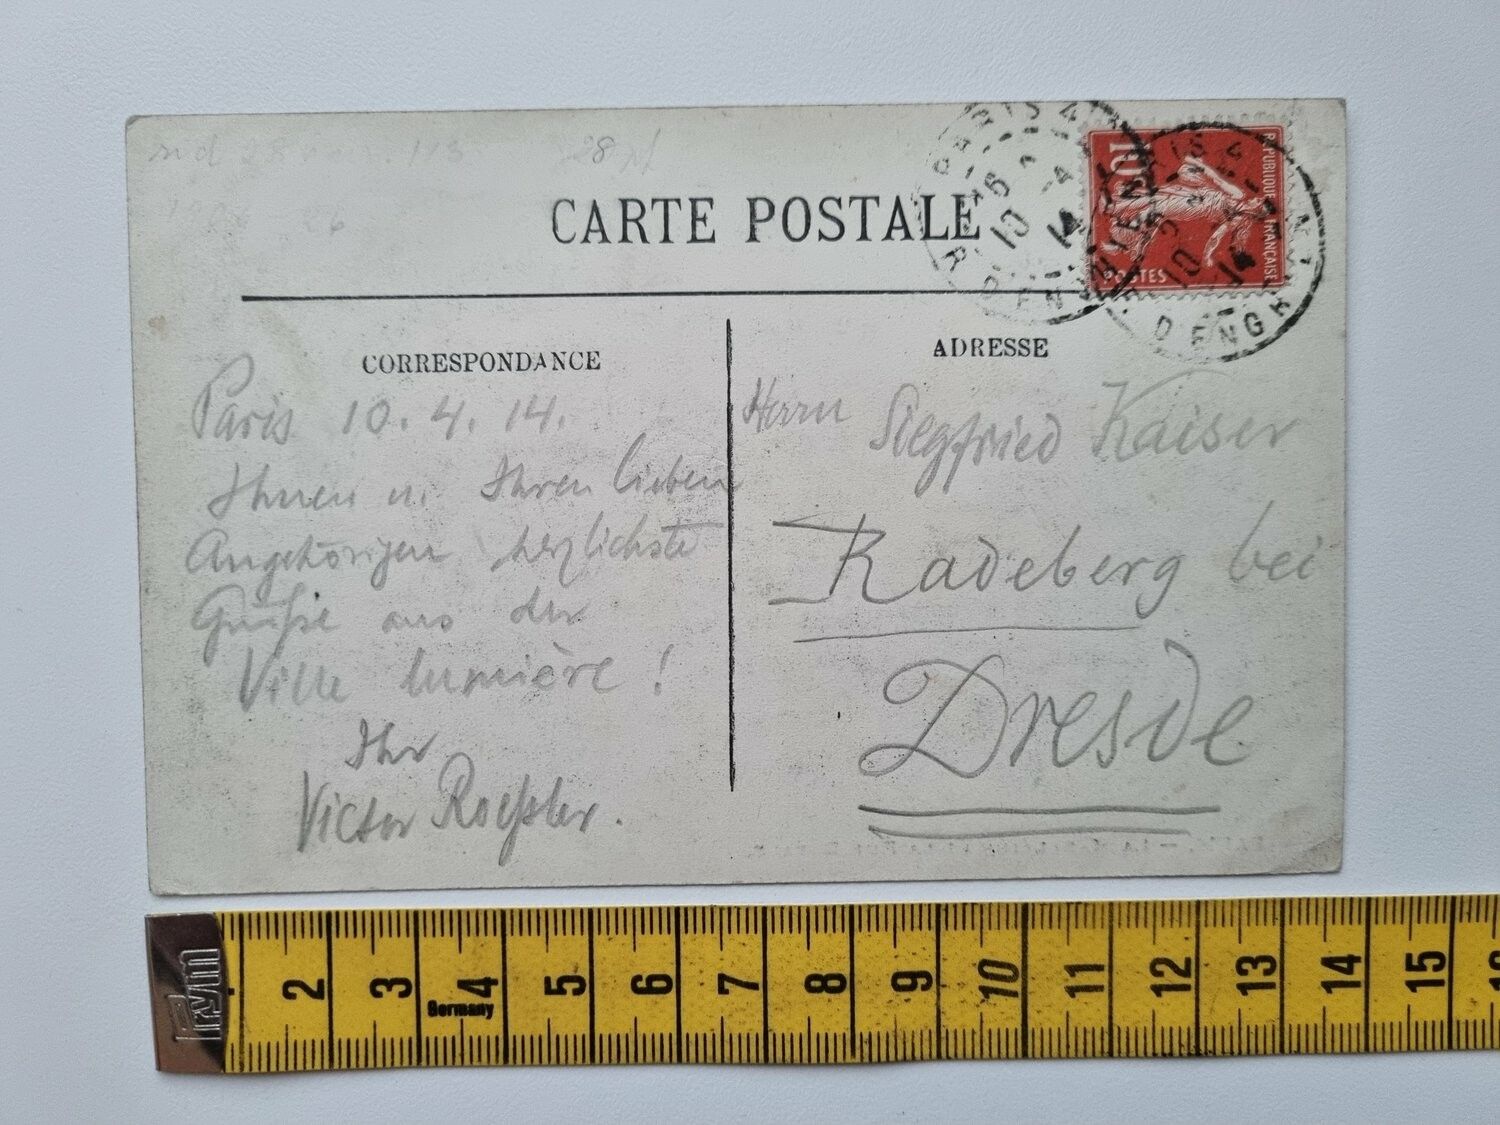 28
CARTE POSTALE
10
REPUBLIQUE FRANÇAISE
POSTES
PARIS
10 4 14
R. D'ENGHIEN
PARIS
10 4 14
D'ENGHIEN
CORRESPONDANCE
ADRESSE
Paris 10.4.14.
Ihnen u. Ihren lieben
Angehörigen herzlichste
Grüße aus der
Ville lumière!
Ihr
Victor Roeßler.
Herrn Siegfried Kaiser
Radeberg bei
Dresde
Prym
2 3 4 5 6 7 8 9 10 11 12 13 14 15
Germany